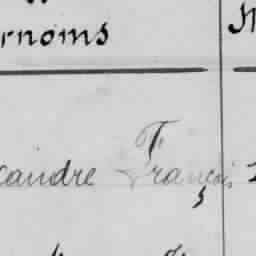 rnoms
candre Françis